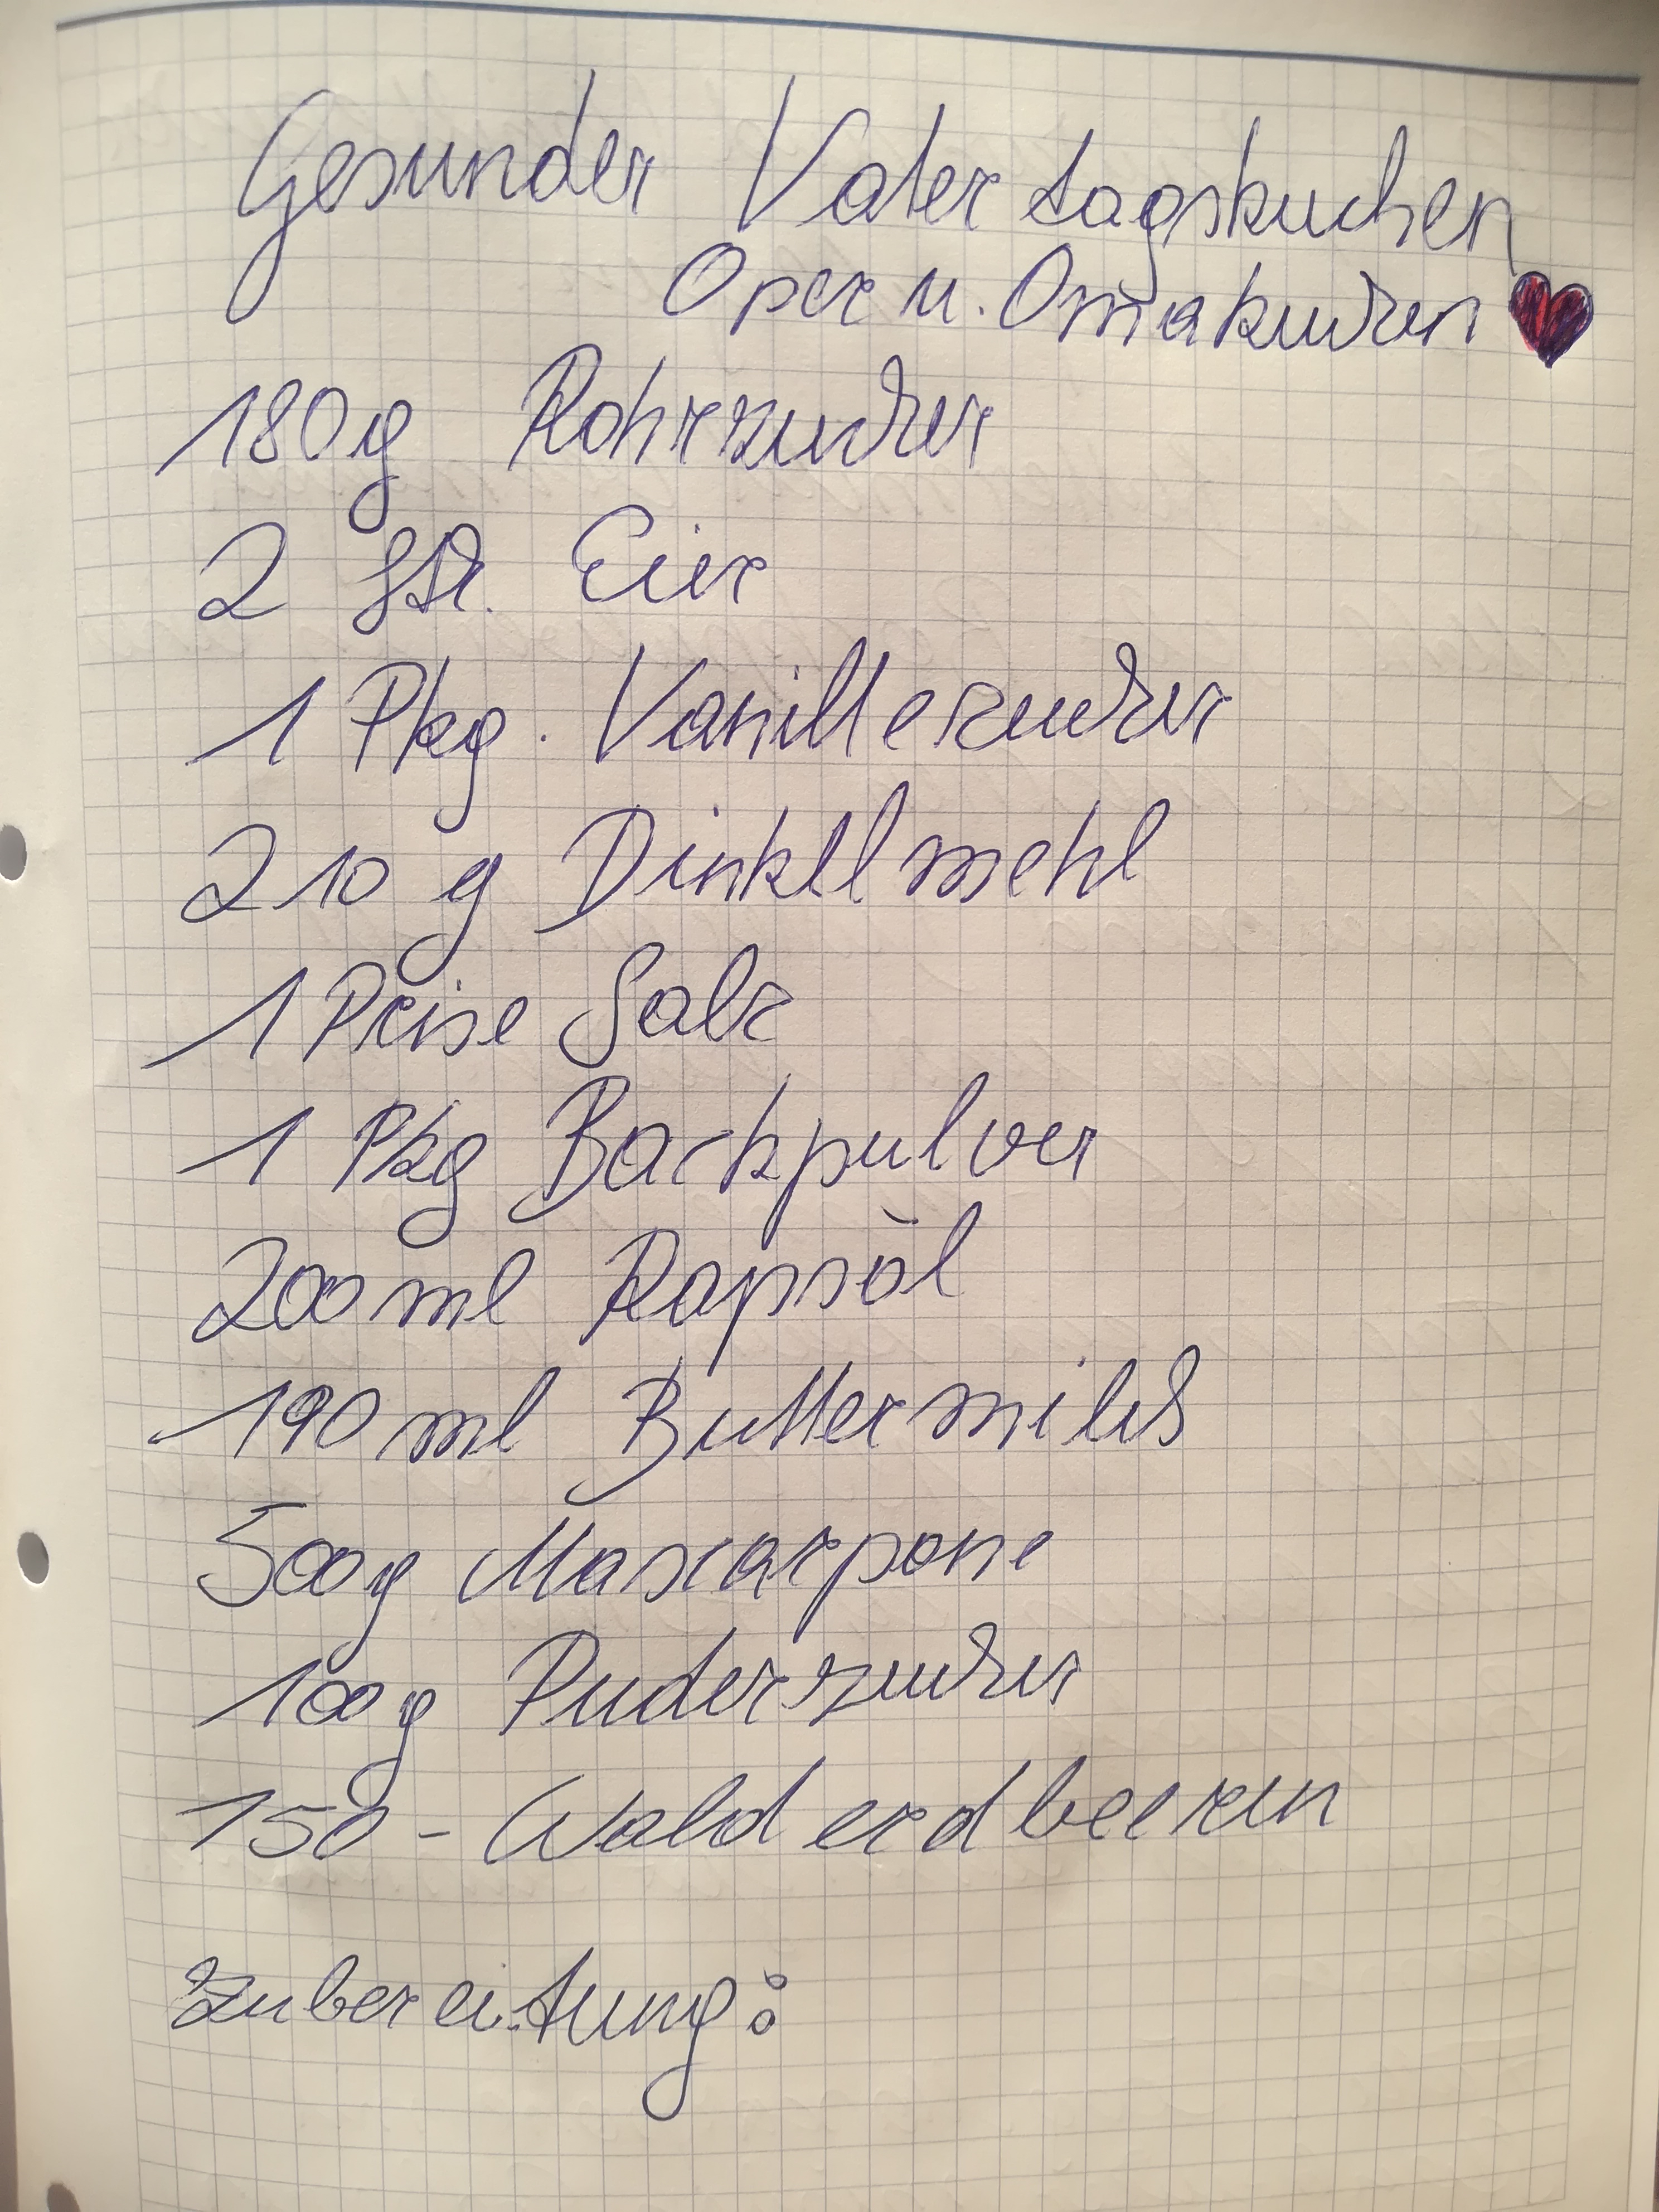 Gesunder Vatertagskuchen
Oper u. Omakuchen
180g Rohrzucker
2 Stk. Eier
1 Pkg. Vanillezucker
210 g Dinkelmehl
1 Preise Salz
1 Pkg Backpulver
200 ml Rapsöl
190 ml Buttermilch
500g Mascarpone
100g Puderzucker
150 - Walderdbeeren
Zubereitung: